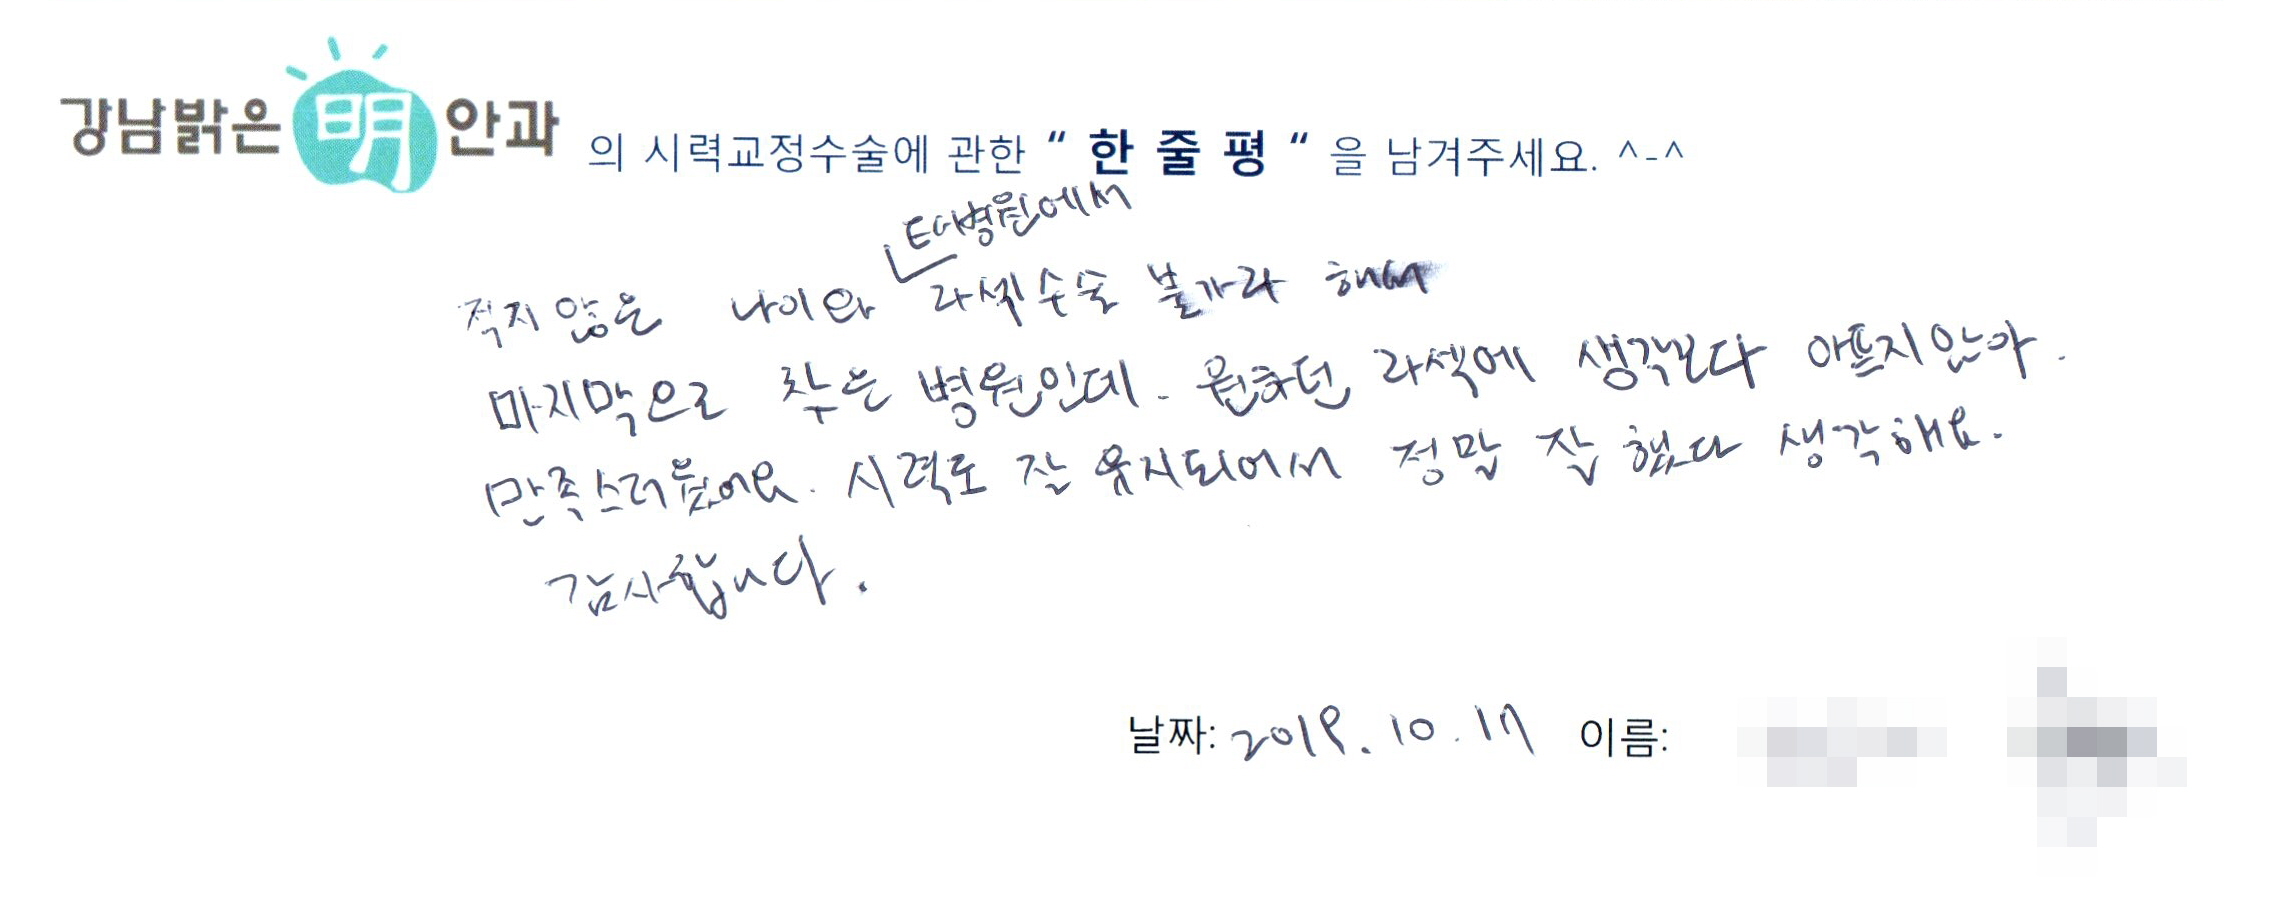 강남밝은明안과 의 시력교정수술에 관한 “ 한 줄 평 “ 을 남겨주세요. ^-^
타병원에서
적지않은 나이와 라섹수술 불가라 해서
마지막으로 찾은 병원인데. 원하던 라섹에 생각보다 아프지않아.
만족스러웠어요. 시력도 잘 유지되어서 정말 잘 했다 생각해요.
감사합니다.
날짜: 2019. 10. 17 이름: